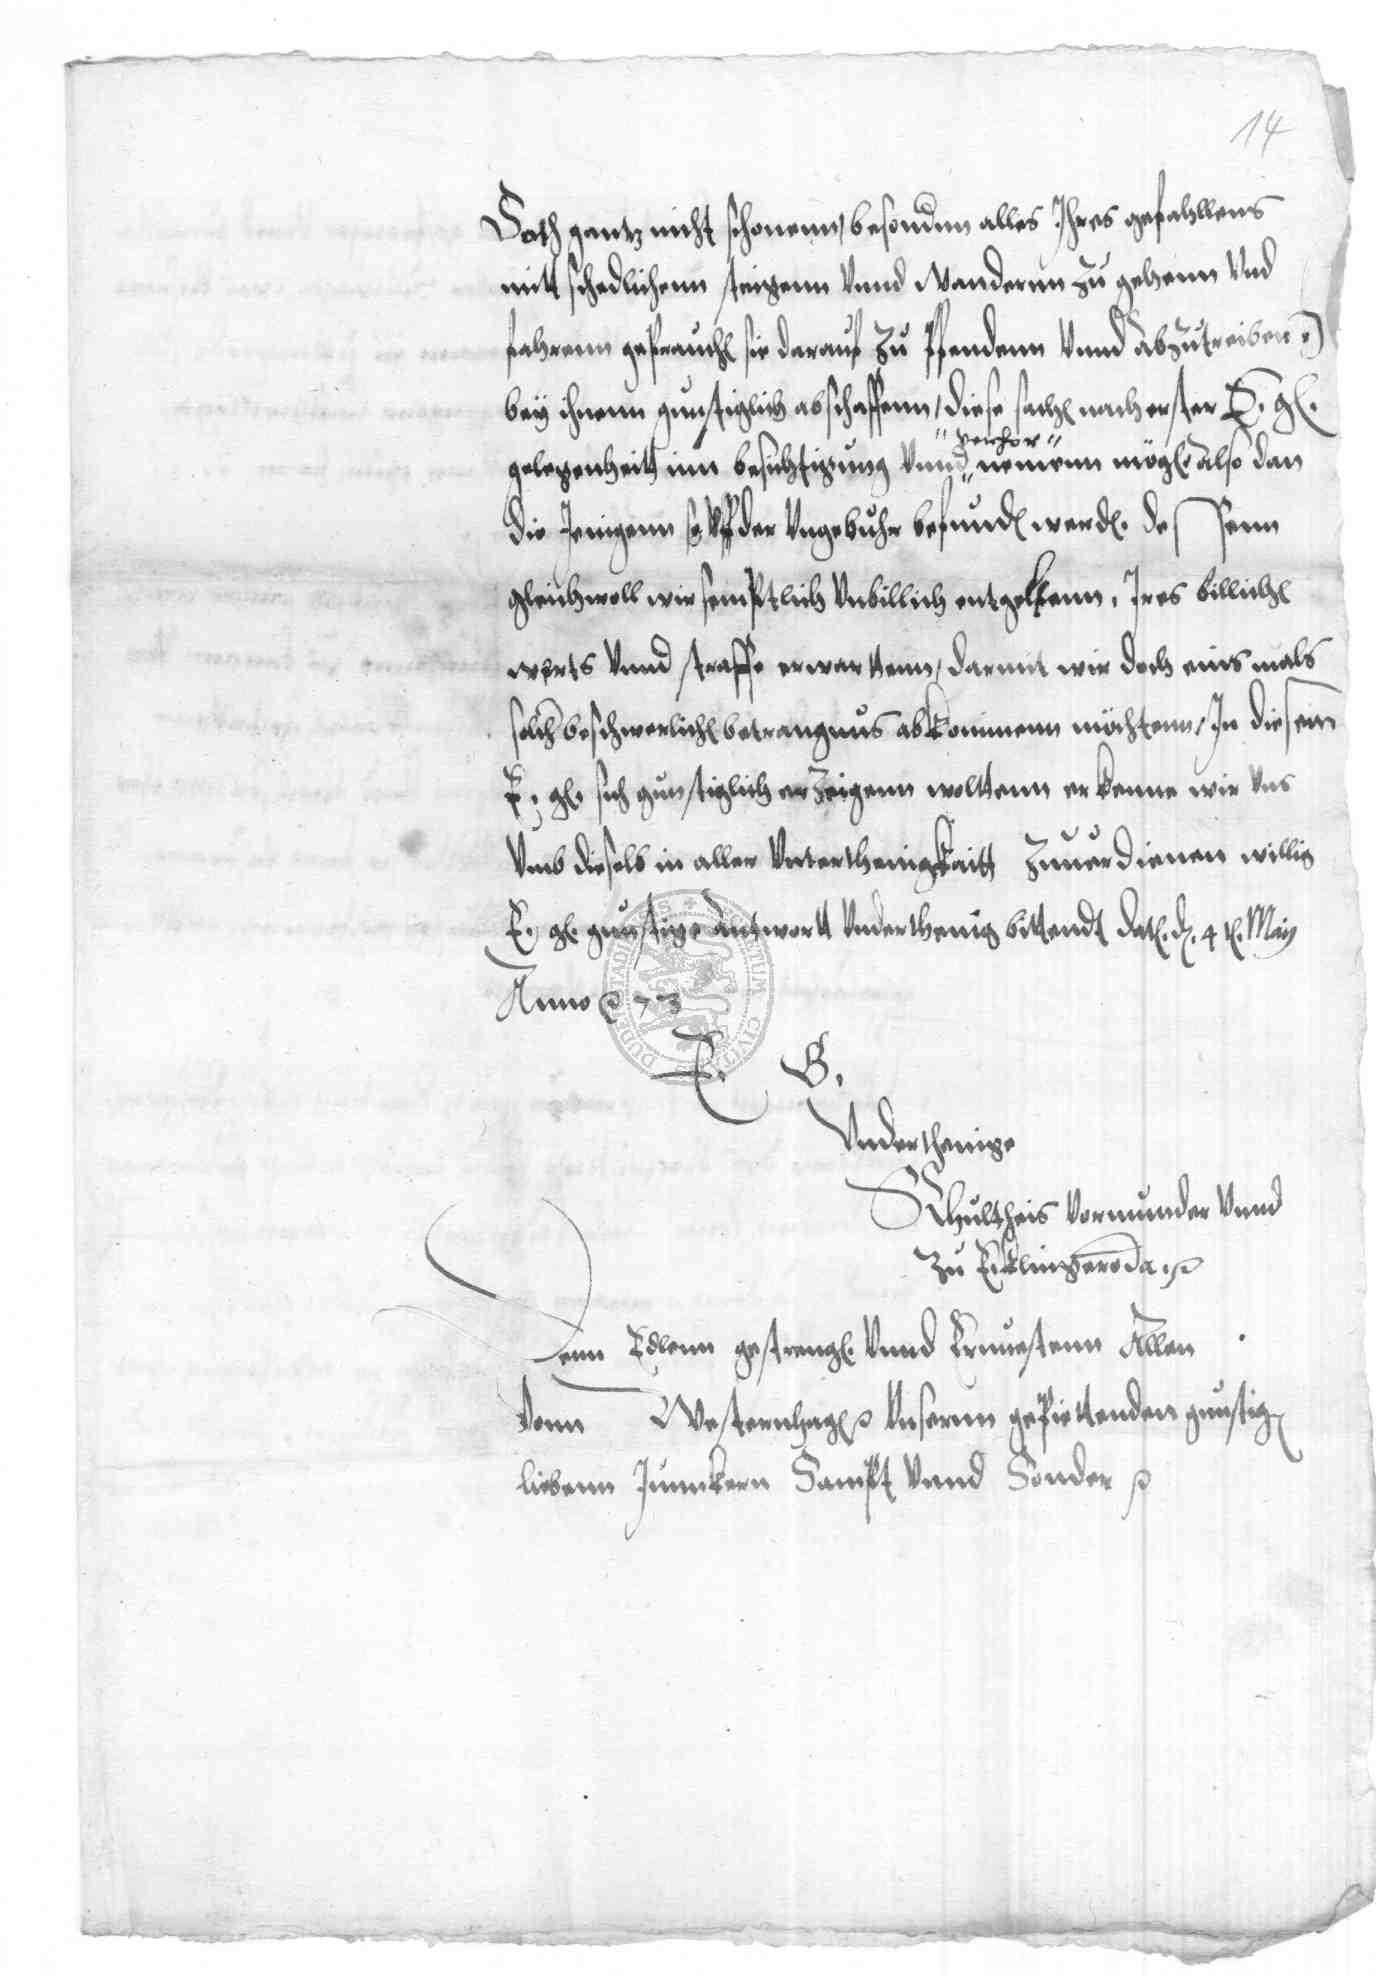 14
Sath gantz nicht schonenn, besondern alles Ihres gefahllens
mitt schedlichenn steigenn vnnd wanderenn zu gehenn vnd
fahrenn gepraucht sie darauf zu pfendenn vnnd abzutreiben
bey ihnenn gunstiglich abschaffenn, diese sach nach erster E. gl.
verhor
gelegenheitt inn besichtigung vnnd nemenn mögl. also dan
die Jenigenn so vff der vngebuhr befund werd. dessenn
gleichwoll wir semptlich vnbillich entgeltenn, Ires billich
werts vnnd straffe erwarttenn, darmit wir doch eins mals
solch beschwerlich betrangnus abkommenn möchtenn, In diesem
E. gl. sich gunstiglich erzeigenn wolttenn erkenne wir vns
vmb dieselb in aller vnterthenigkaitt zuuerdienen willig
E. gl. gunstige antwortt vnderthenig bittendt dat. d. 4 t. May
Anno 73
E. G.
vnderthenige
Schultheis vormunder vnnd
zu Ecklingeroda
Denn Edlenn gestreng. vnnd Ernuestenn Allen
vonn Westernhag vnserenn gepiettenden gunstig
liebenn Junckern Sampt vnnd Sonder
SECRETUM CIVITA DUDERSTADIENSIS